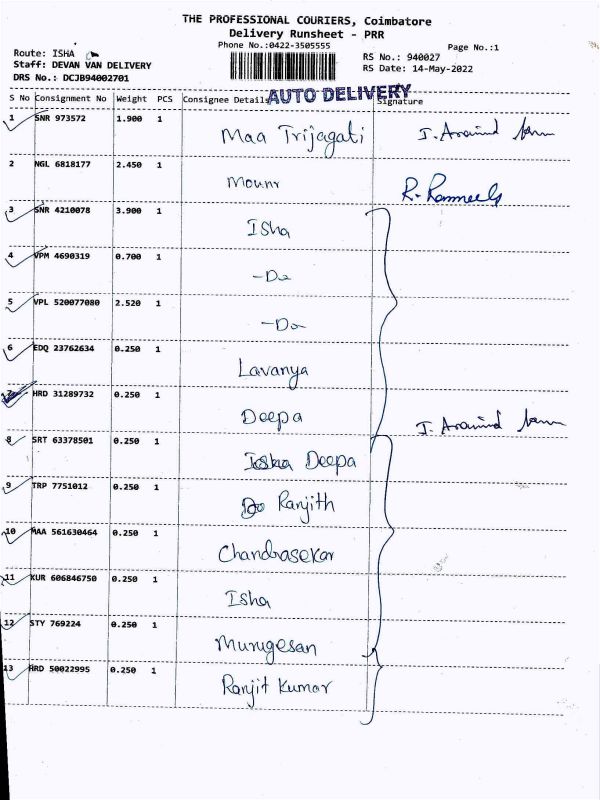 THE PROFESSIONAL COURIERS, Coimbatore
Delivery Runsheet - PRR
Phone No.:0422-3505555
Page No.:1
Route: ISHA
Staff: DEVAN VAN DELIVERY
DRS No.: DCJB94002701
RS No.: 940027
RS Date: 14-May-2022
S No Consignment No Weight PCS Consignee Details AUTO DELIVERY Signature
1 SNR 973572 1.900 1 Maa Trijagati J. Aravind
2 NGL 6818177 2.450 1 Mounr
3 SNR 4210078 3.900 1 Isha
4 VPM 4690319 0.700 1 -Do
5 VPL 520077080 2.520 1 -Do
6 EDQ 23762634 0.250 1 Lavanya
7 HRD 31289732 0.250 1 Deepa J. Aravind
8 SRT 63378501 0.250 1 Deepa
9 TRP 7751012 0.250 1 Ranjith
10 MAA 561630464 0.250 1 Chandrasekar
11 KUR 606846750 0.250 1 Isha
12 STY 769224 0.250 1 Murugesan
13 HRD 50022995 0.250 1 Ranjit Kumar